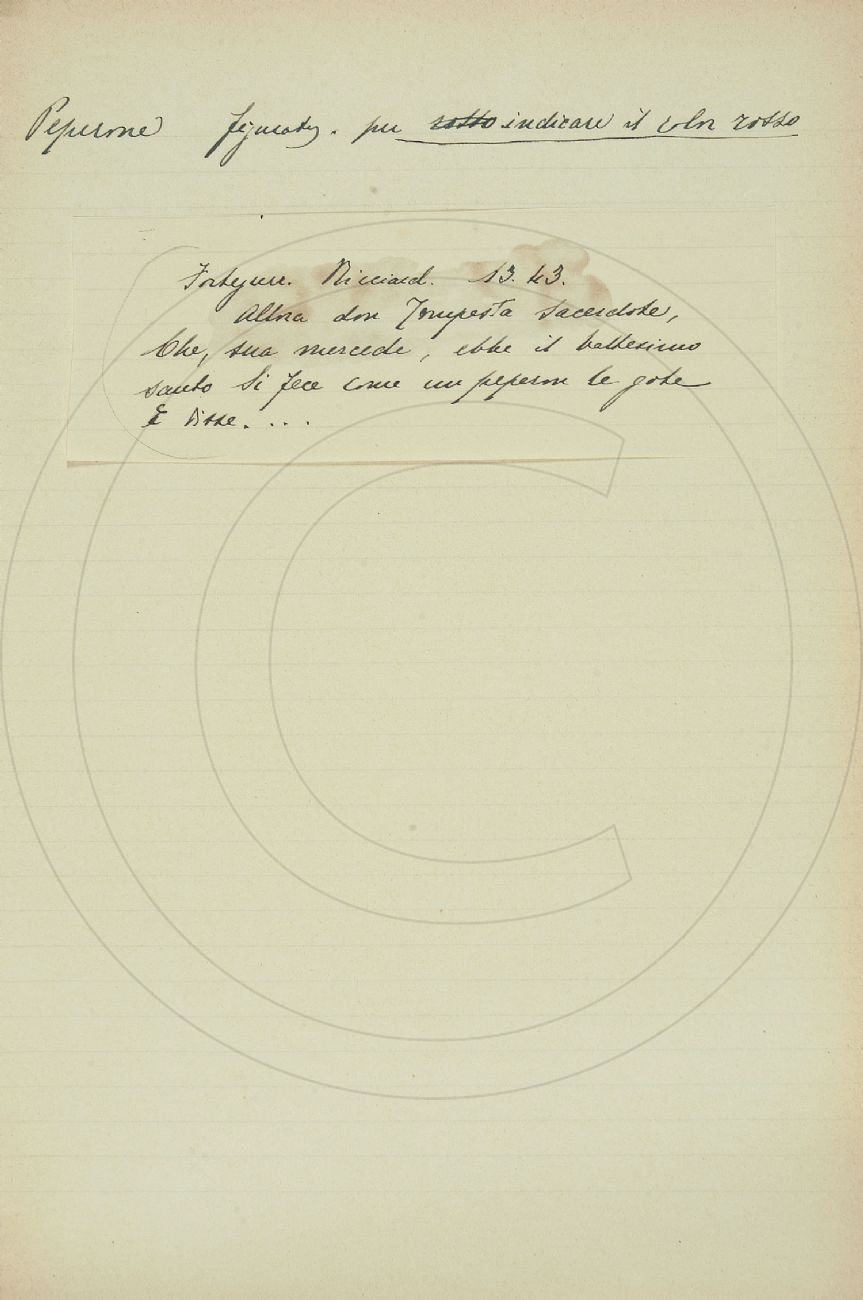 Peperone figuratg. per rosso indicare il color rosso
Forteguer. Ricciard. 13. 43.
Allora don Tempesta sacerdote,
Che, sua mercede, ebbe il battesimo
santo Si fece come un peperon le gote
E disse. . . .